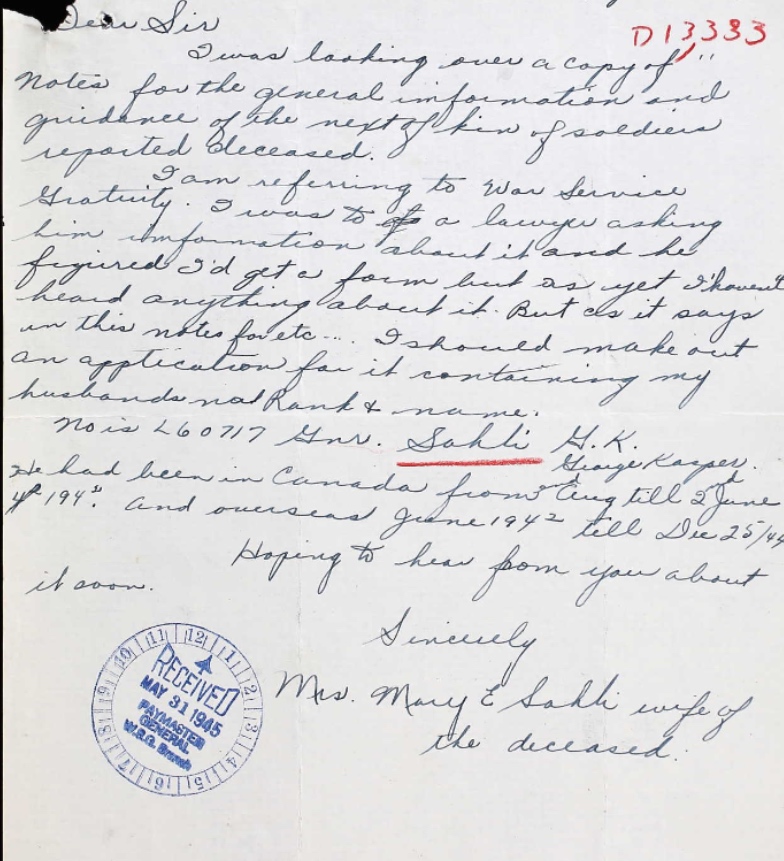 Dear Sir
D13383
I was looking over a copy of "
Notes for the general information and
guidance of the next of kin of soldiers
reported deceased.
I am referring to War Service
Gratuity. I was to a lawyer asking
him imformation about it and he
figured I'd get a form but as yet I haven't
heard anything about it. But as it says
in this notes for etc.... I should make out
an application for it containing my
husbands no Rank & name.
No is L60717 Gnr. Sahli G.K.
George Kasper.
He had been in Canada from Aug till 2nd June
and overseas June 1942 till Dec 25/44
Hoping to hear from you about
it soon.
Sincerely
Mrs. Mary E Sahli wife of
the deceased.
12 1 2 3 15 16 17 18 9 10 11
RECEIVED
MAY 31 1945
PAYMASTER
GENERAL
W.S.G. Branch